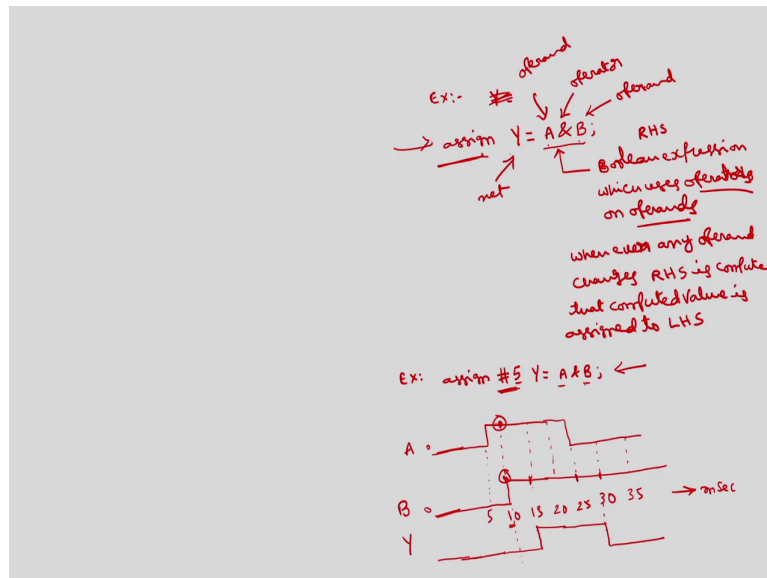 operand
operator
Ex:-
operand
assign Y = A & B;
RHS
net
Boolean expression
which uses operators
on operands
when ever any operand
changes RHS is compute
that computed value is
assigned to LHS
Ex: assign #5 Y = A & B;
A 0
B 0
5 10 15 20 25 30 35 → msec
Y